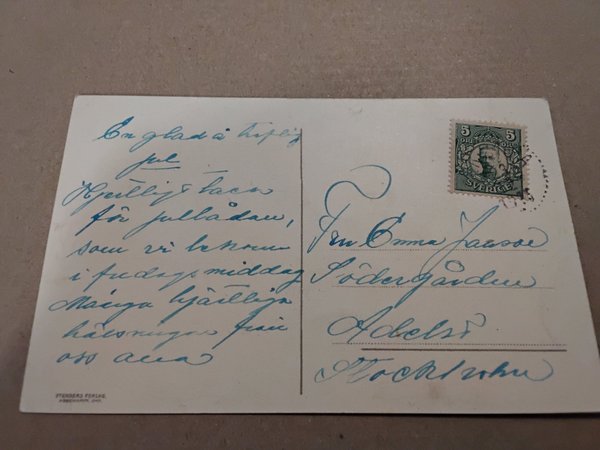 En glad å treflig
jul
Hjertligt tack
för jullådan,
som vi bekom
i fredagsmiddag
Många hjärtliga
hälsningar från
oss alla
STENDERS FORLAG.
5 5
SVERIGE
Fru Emma Jansson
Södergården
Adelsö
Stockholm